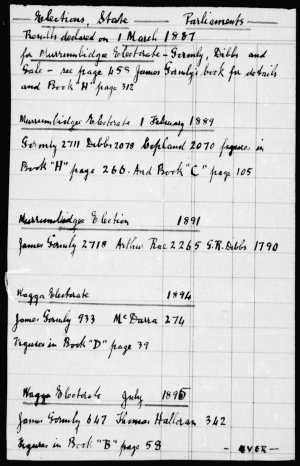 Elections, State Parliaments
Results declared on 1 March 1887
for Murrumbidgee Electorate - Gormly, Dibbs and
Gale - see page 459 James Gormly's book for details
and Book "H" page 312
Murrumbidgee Electorate 1 February 1889
Gormly 2711 Dibbs 2078 Copland 2070 figures in
Book "H" page 266. And Book "C" page 105
Murrumbidgee Election 1891
James Gormly 2718 Arthur Rae 2265 G.R. Dibbs 1790
Wagga Electorate 1894
James Gormly 933 McDarra 274
Figures in Book "D" page 39
Wagga Electorate July 1895
James Gormly 647 Thomas Halloran 342
Figures in Book "B" page 58
- OVER -